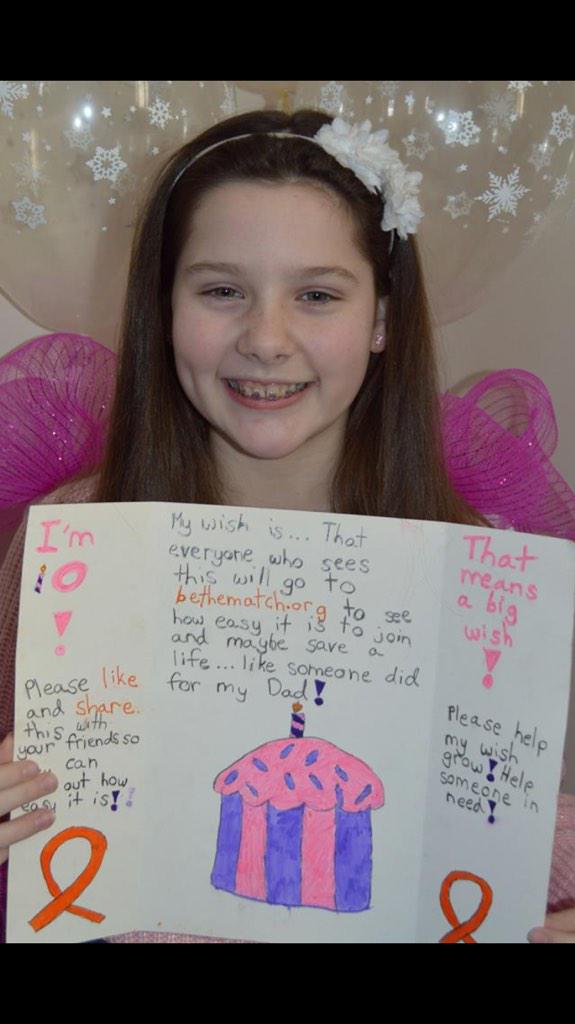 I'm
10
!
Please like
and share.
this with
your friends so
can
out how
easy it is!!
My wish is... That
everyone who sees
this will go to
bethematch.org to see
how easy it is to join
and maybe save a
life... like someone did
for my Dad!
That
means
a big
wish
!
Please help
my wish
grow! Help
someone in
need!